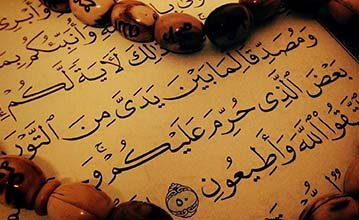 وَأُنَبِّئُكُم
ذَٰلِكَ لَآيَةً لَّكُمْ
وَمُصَدِّقًا لِّمَا بَيْنَ يَدَيَّ مِنَ ٱلتَّوْرَ
بَعْضَ ٱلَّذِى حُرِّمَ عَلَيْكُمْ وَ
تَّقُوا۟ ٱللَّهَ وَأَطِيعُونِ ٥٠